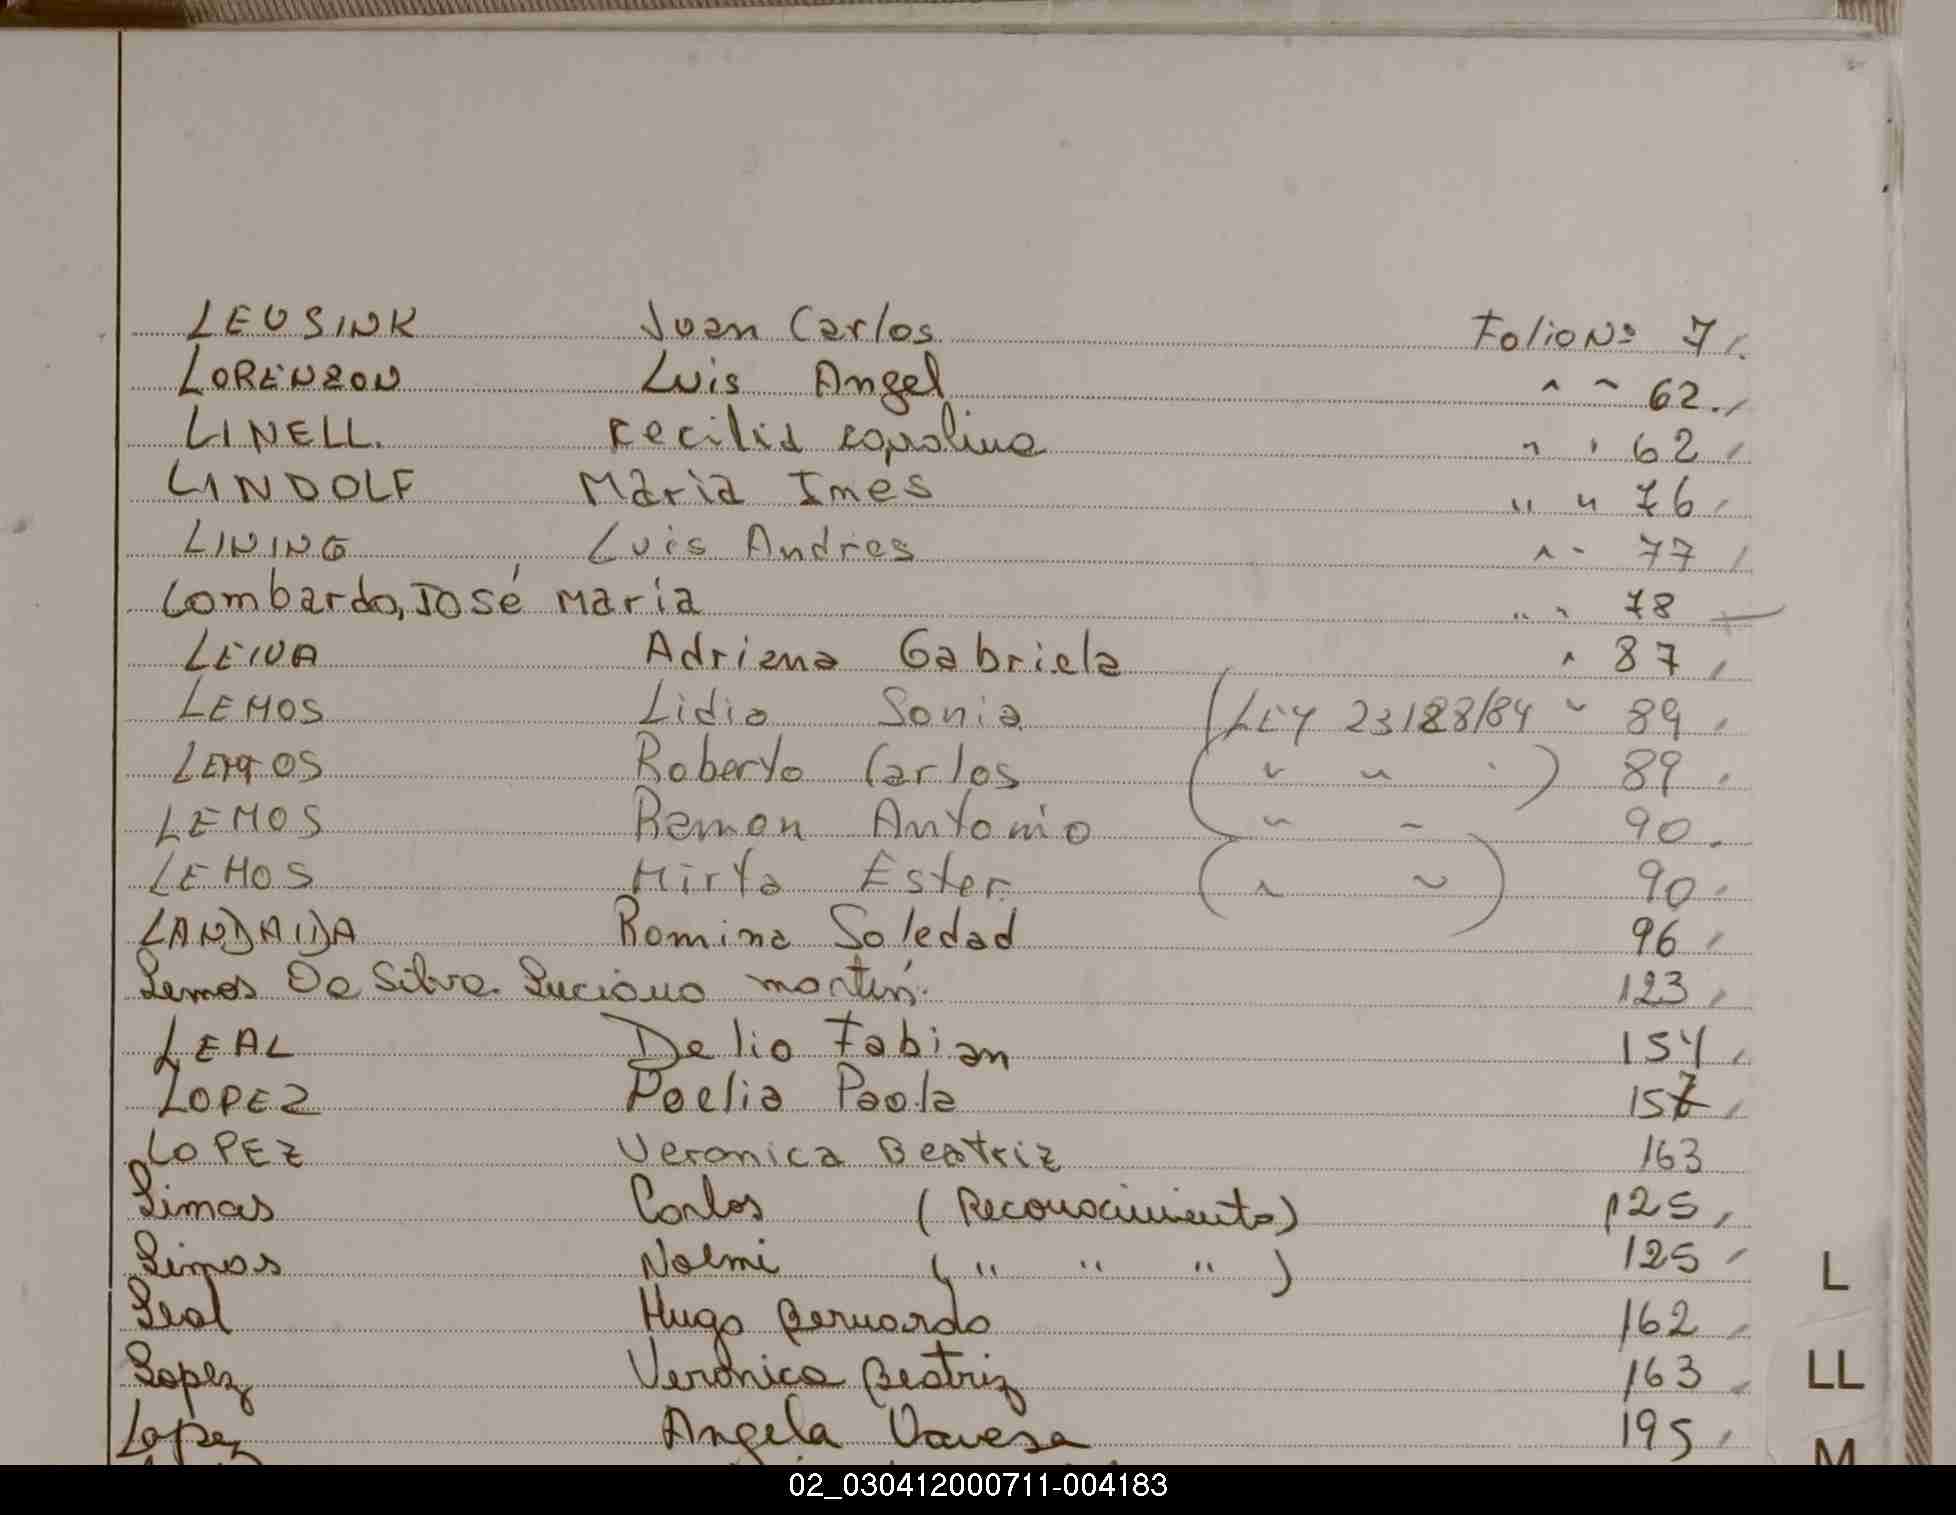 LEUSINK Juan Carlos Folio Nº 7
LORENZON Luis Angel " " 62.
LINELL. Cecilia Carolina " " 62
LINDOLF Maria Ines " " 76
LINING Luis Andres " " 77
Lombardo, José Maria " " 78
LEIVA Adriana Gabriela " 87
LEMOS Lidia Sonia (LEY 23188/84 " 89
LEMOS Roberto Carlos ( " " " ) 89
LEMOS Ramon Antonio " " 90
LEMOS Mirta Ester ( " " ) 90
LANDAIDA Romina Soledad 96
Lemos Da Silva Luciano martín. 123
LEAL Delio Fabian 154
LOPEZ Noelia Paola 157
LOPEZ Veronica Beatriz 163
Limas Carlos (Reconocimiento) 125
Limas Noemi ( " " " ) 125
Leal Hugo Bernardo 162
Lopez Veronica Beatriz 163
Lopez Angela Vanesa 195
L
LL
M
02_030412000711-004183